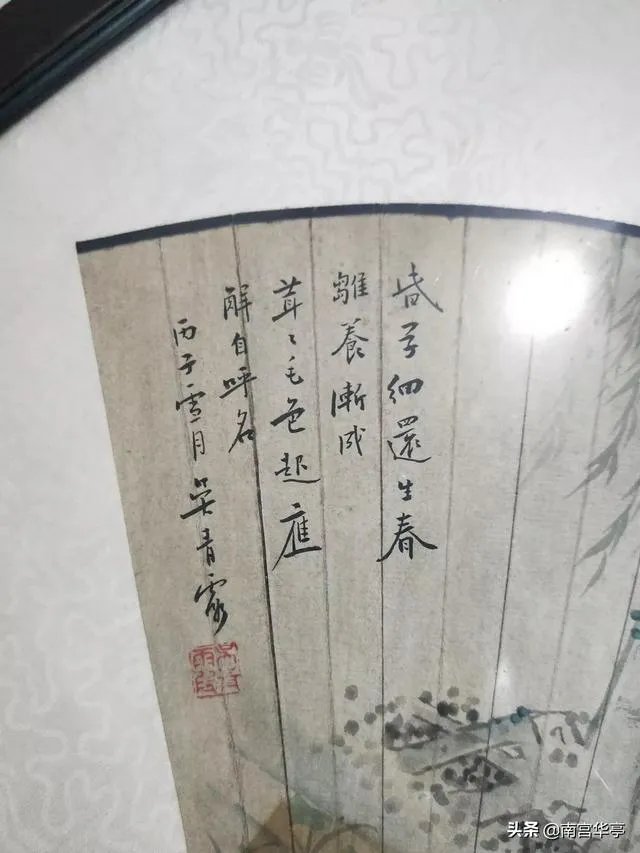 子細還生春
雛養漸成
茸〻毛色起應
解自呼名
丙子雪月吳青霞
头条 @南宫华亭